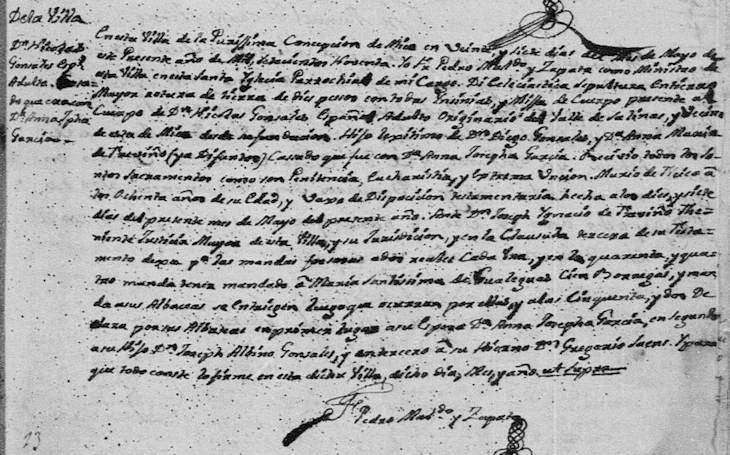 De la Villa
Dn. Nicolas
Gonsales Espl.
Adulto. Casa-
do que era con
Dª Anna Jpha
Garcia
En esta Villa de la Purissima Concepcion de Mier en Veinte, y siete dias del Mes de Mayo de
este Presente año de Mil, setescientos Noventa. Yo Fr. Pedro Maldo. y Zapata como Ministro de
esta Villa en esta Santa Iglecia Parrochial de mi Cargo. Di Eclesiastica sepultura Entierro
Mayor rotura de tierra de dies pesos con todas Insinias, y Missa de Cuerpo presente al
Cuerpo de Dn. Nicolas Gonsales Español Adulto Originario del Valle de Salinas, y Vecino
de esta de Mier desde su fundacion. Hijo lexitimo de Dn. Diego Gonsales, y Dª Anna Maria
de Treviño (ya Difuntos) Cassado que fue con Dª Anna Josepha Garcia. Recivio todos los San-
tos Sacramentos como son Penitencia, Eucharistia, y Extrema Uncion. Murio de
los Ochenta años de su Edad, y Vaxo de Disposicion testamentaria, hecha a los dies, y siete
dias del presente mes de Mayo del presente año. Ante Dn. Joseph Ignacio de Treviño The-
niente Justicia Mayor de esta Villa, y su Jurisdicion, y en la Clausula tercera de su Testa-
mento dexa pª las mandas forsosas a dos reales Cada Una, y en la quarenta, y qua-
tro manda tener mandado â Maria Santissima de Gualeguas Cien Borregas, y man-
da a sus Albaceas se entriegen luego que ocurran por ellas, y a las Cinquenta, y dos De
clara por sus Albaceas en primer lugar a su Esposa Dª Anna Josepha Garcia, en segundo
a su Hijo Dn. Joseph Albino Gonsales, y en tercero â su Hierno Dn. Gregorio Saens. Y para
que todo conste lo firme en esta dicha Villa, dicho dia, Mes, y año ut supra
Fr. Pedro Maldo. y Zapata
23